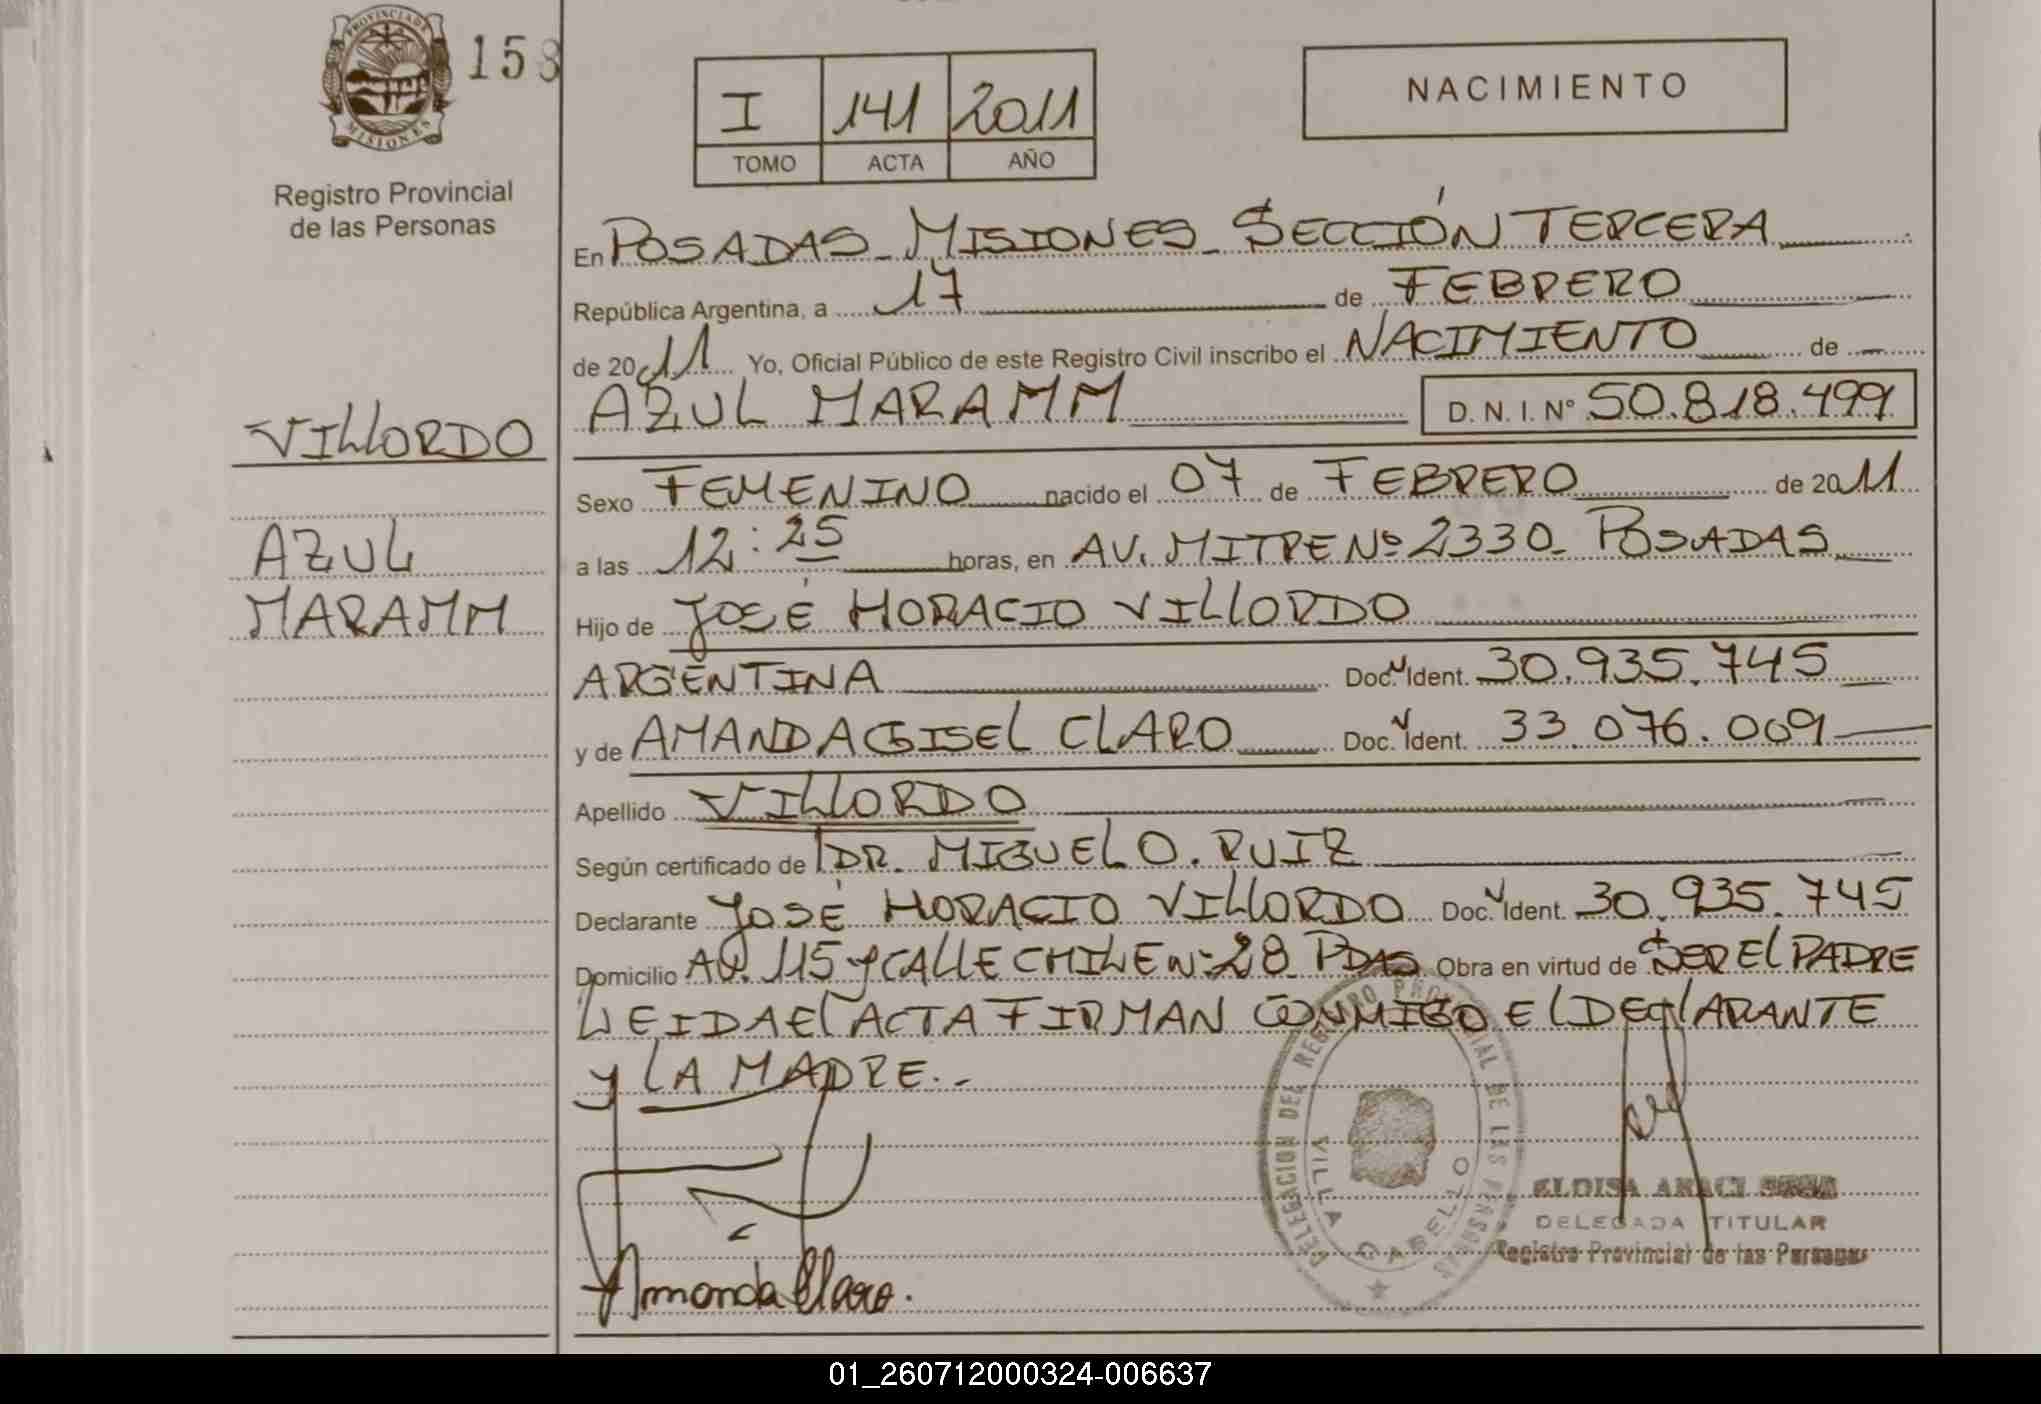 PROVINCIA DE
MISIONES
158
Registro Provincial
de las Personas
I 141 2011
TOMO ACTA AÑO
NACIMIENTO
En POSADAS - MISIONES - SECCIÓN TERCERA
República Argentina, a 17 de FEBRERO
de 2011 Yo, Oficial Público de este Registro Civil inscribo el NACIMIENTO de
VILLORDO
AZUL MARAMM D. N. I. Nº 50.818.499
Sexo FEMENINO nacido el 07 de FEBRERO de 2011
AZUL
a las 12:25 horas, en AV. MITRE Nº 2330 - POSADAS
MARAMM
Hijo de JOSÉ HORACIO VILLORDO
ARGENTINA Doc. Ident. 30.935.745
y de AMANDA GISEL CLARO Doc. Ident. 33.076.009
Apellido VILLORDO
Según certificado de DR. MIGUEL O. RUIZ
Declarante JOSÉ HORACIO VILLORDO Doc. Ident. 30.935.745
Domicilio AV. 115 y CALLE CHILE Nº 28 PDAS Obra en virtud de SER EL PADRE
LEIDA EL ACTA FIRMAN CONMIGO EL DECLARANTE
y LA MADRE.-
DELEGACION DEL REGISTRO PROVINCIAL DE LAS PERSONAS
VILLA CABELLO
ELOISA ARACI
DELEGADA TITULAR
Registro Provincial de las Personas
Amanda Claro.
01_260712000324-006637